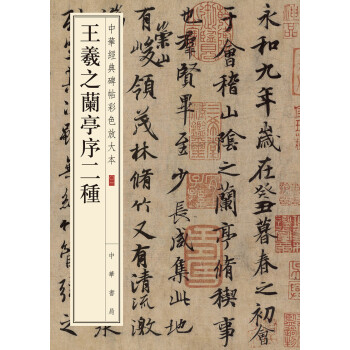 永和九年歲在癸丑暮春之初會
于會稽山陰之蘭亭脩稧事
也群賢畢至少長咸集此地
崇山
有峻領茂林脩竹又有清流激
中華經典碑帖彩色放大本
王羲之蘭亭序二種
中華書局